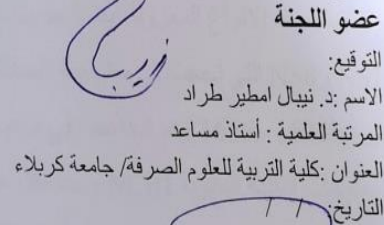 عضو اللجنة
التوقيع:
الاسم :د. نيبال امطير طراد
المرتبة العلمية : أستاذ مساعد
العنوان :كلية التربية للعلوم الصرفة/ جامعة كربلاء
التاريخ: / /